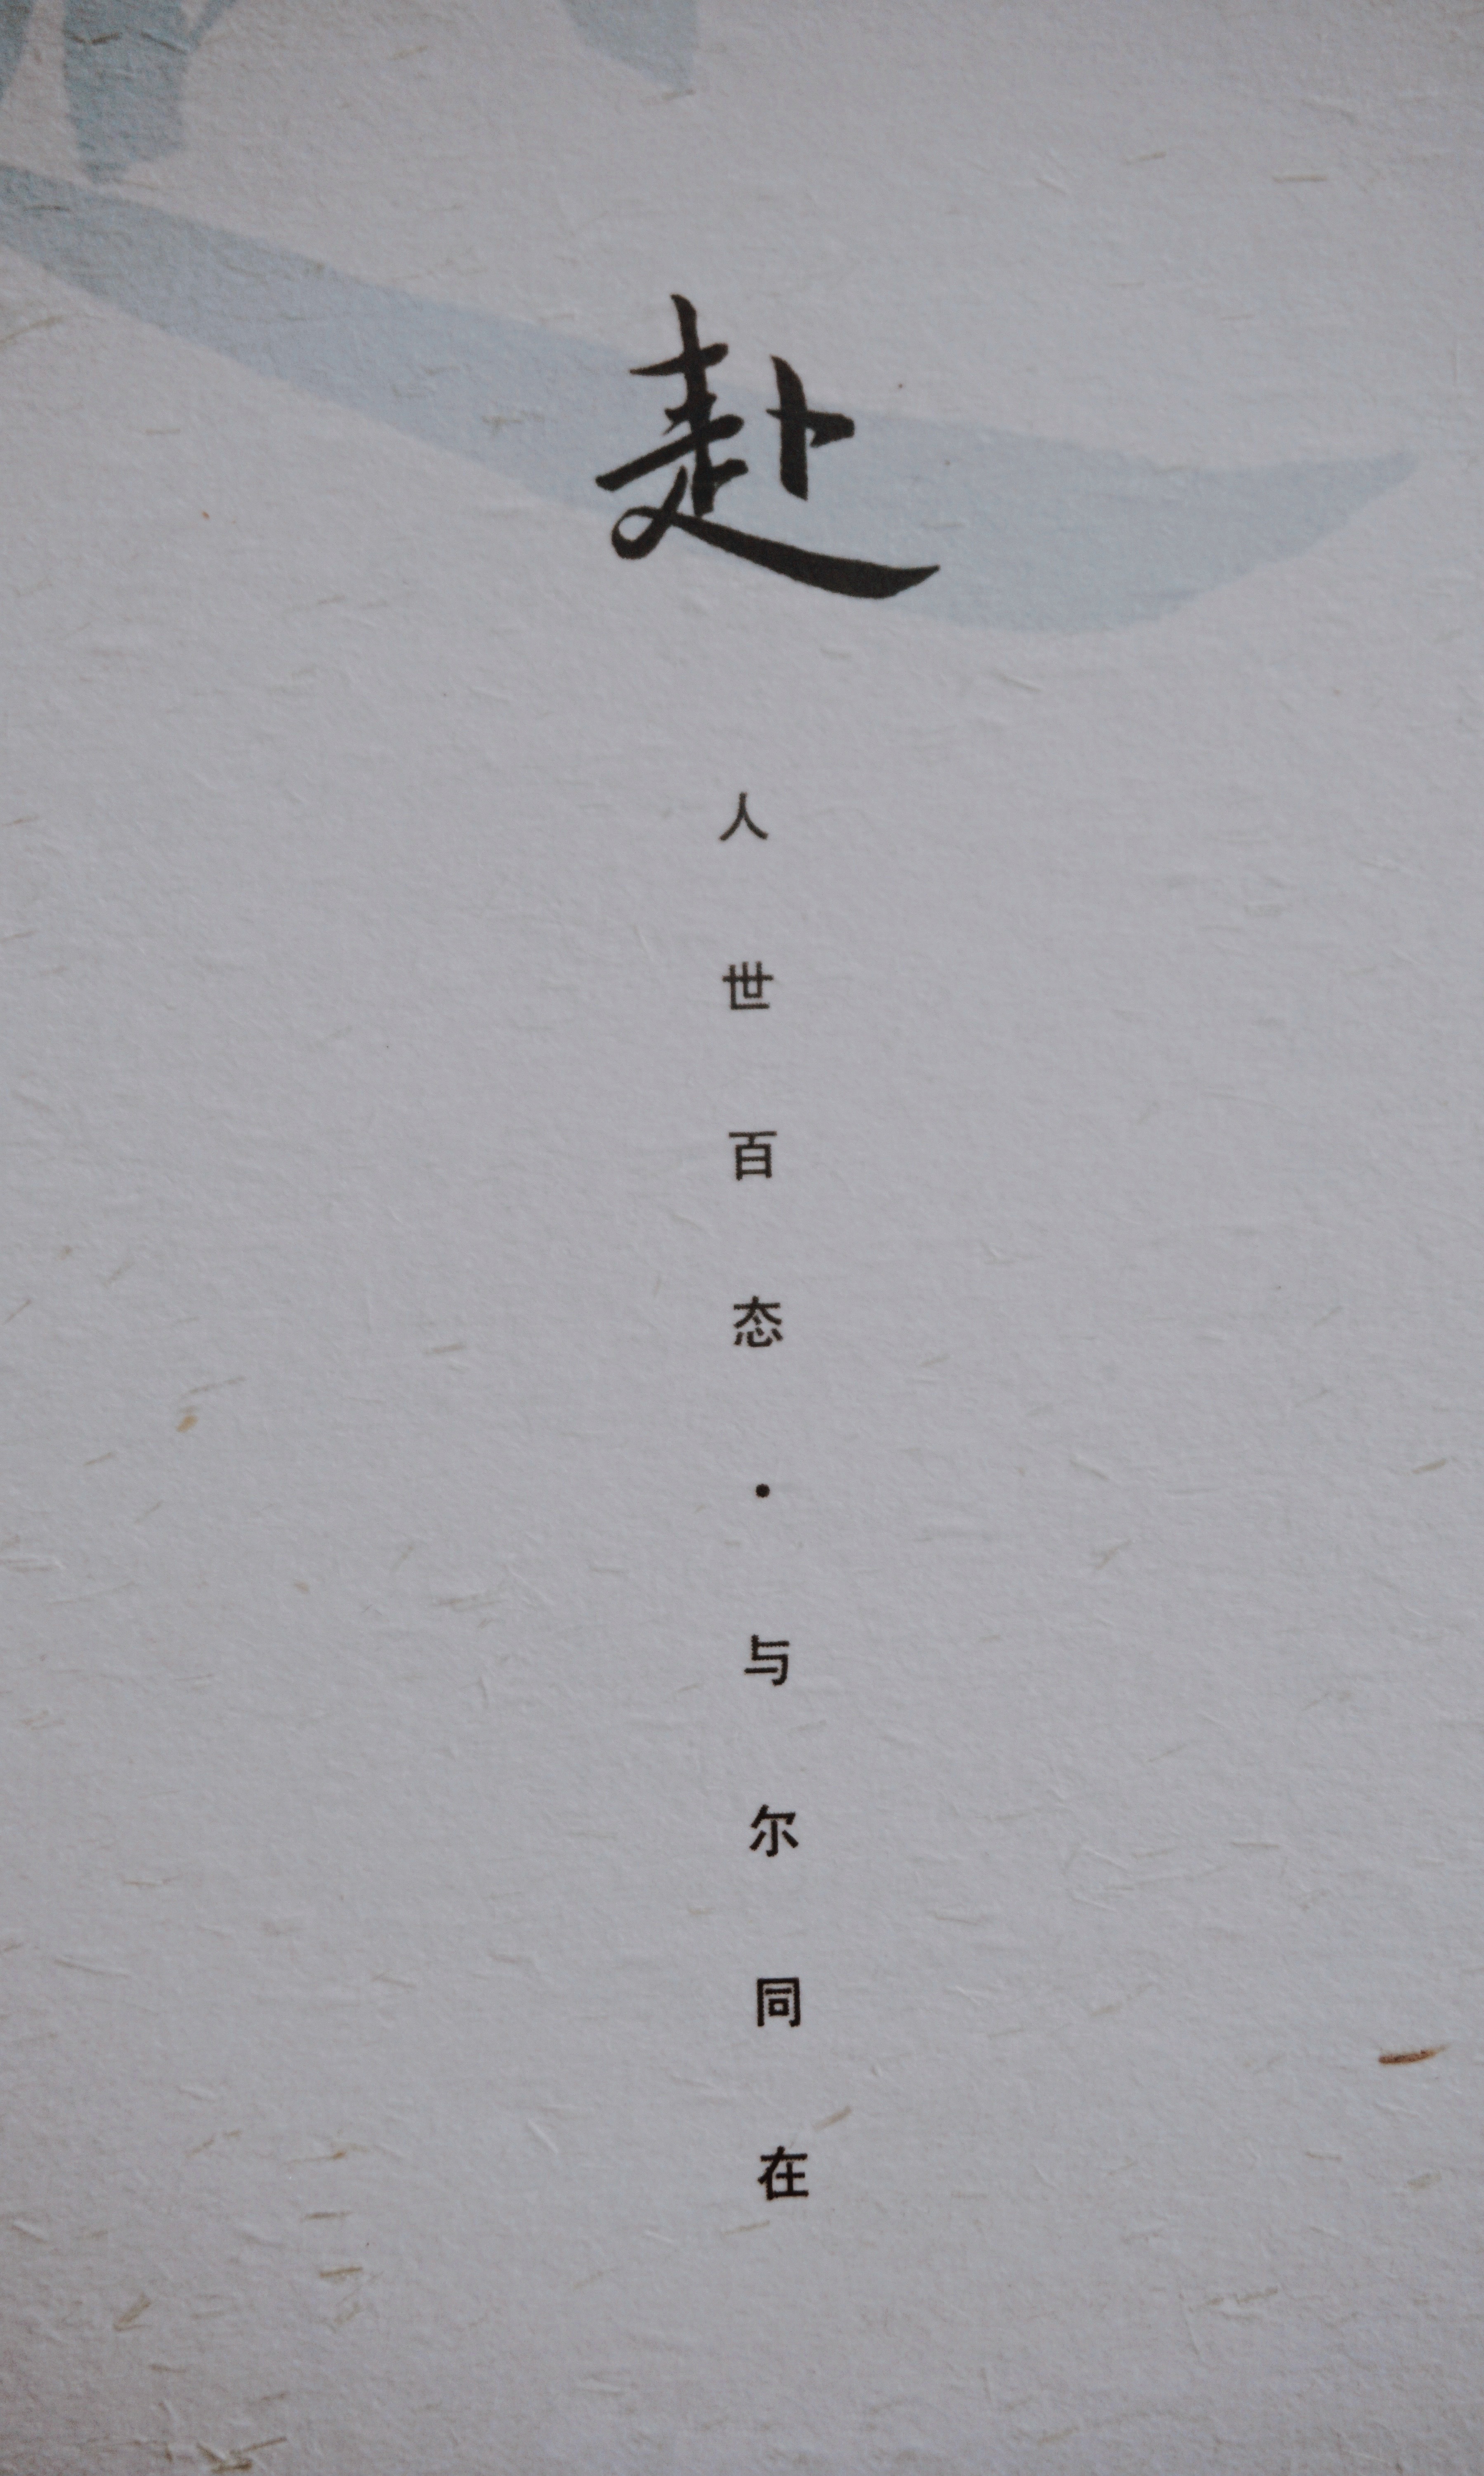 赴
人世百态·与尔同在